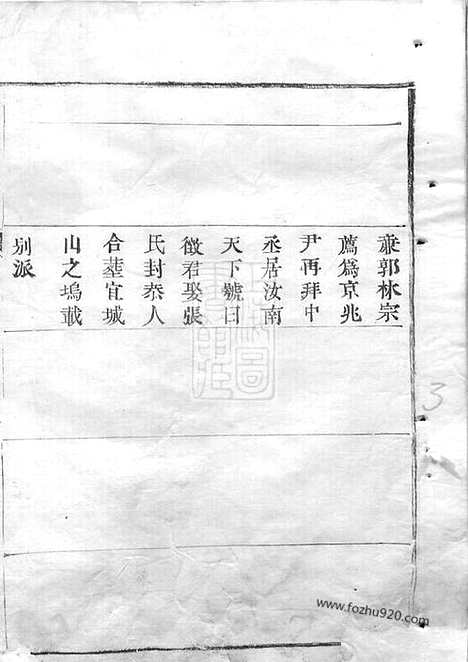 兼郭林宗
薦為京兆
尹再拜中
丞居汝南
天下號曰
徵君娶張
氏封恭人
合塟宜城
山之塢載
別派
3
www.fozhu920.com